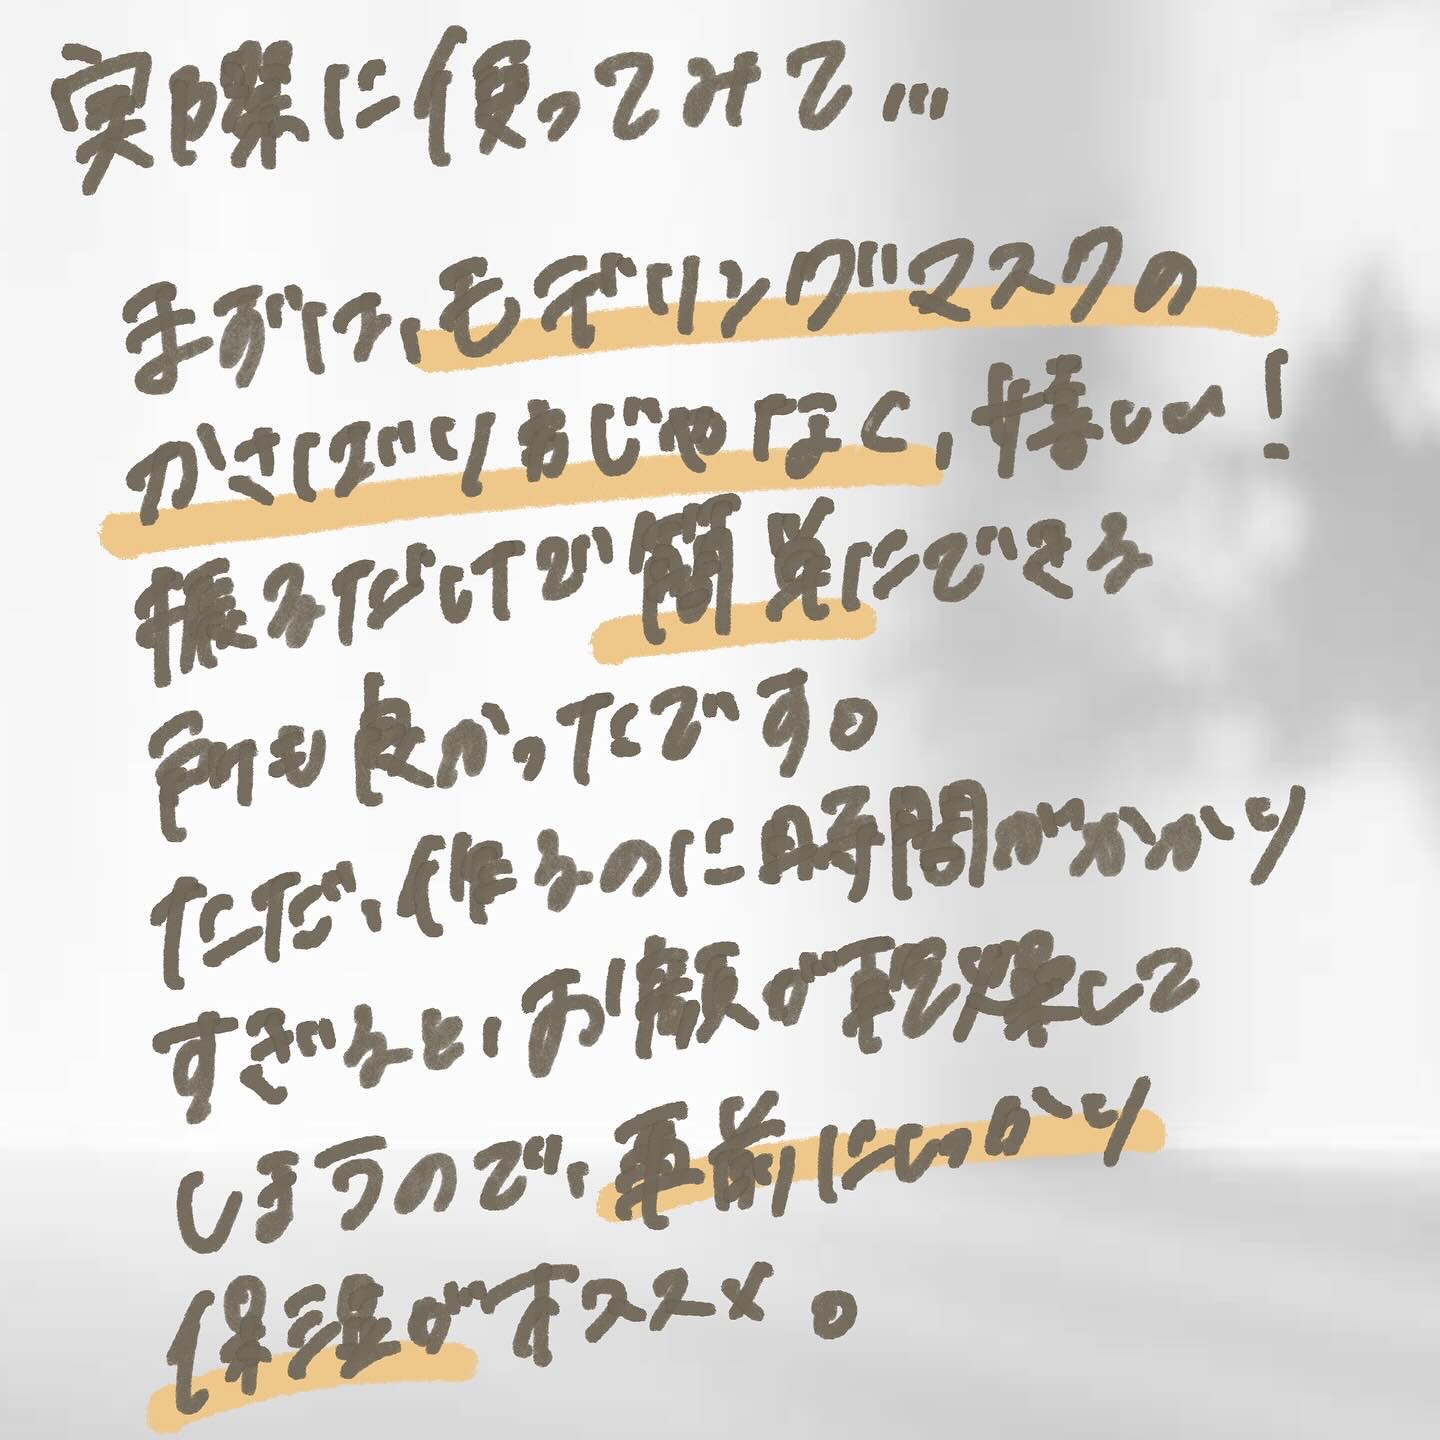 実際に使ってみて…
まずは、モデリングマスクの
かさばりもじゃなく、嬉しい!
振るだけで簡単にできる
所も良かったです。
ただ、作るのに時間がかかり
すぎると、お顔が乾燥して
しまうので、事前にしっかり
保湿がオススメ。